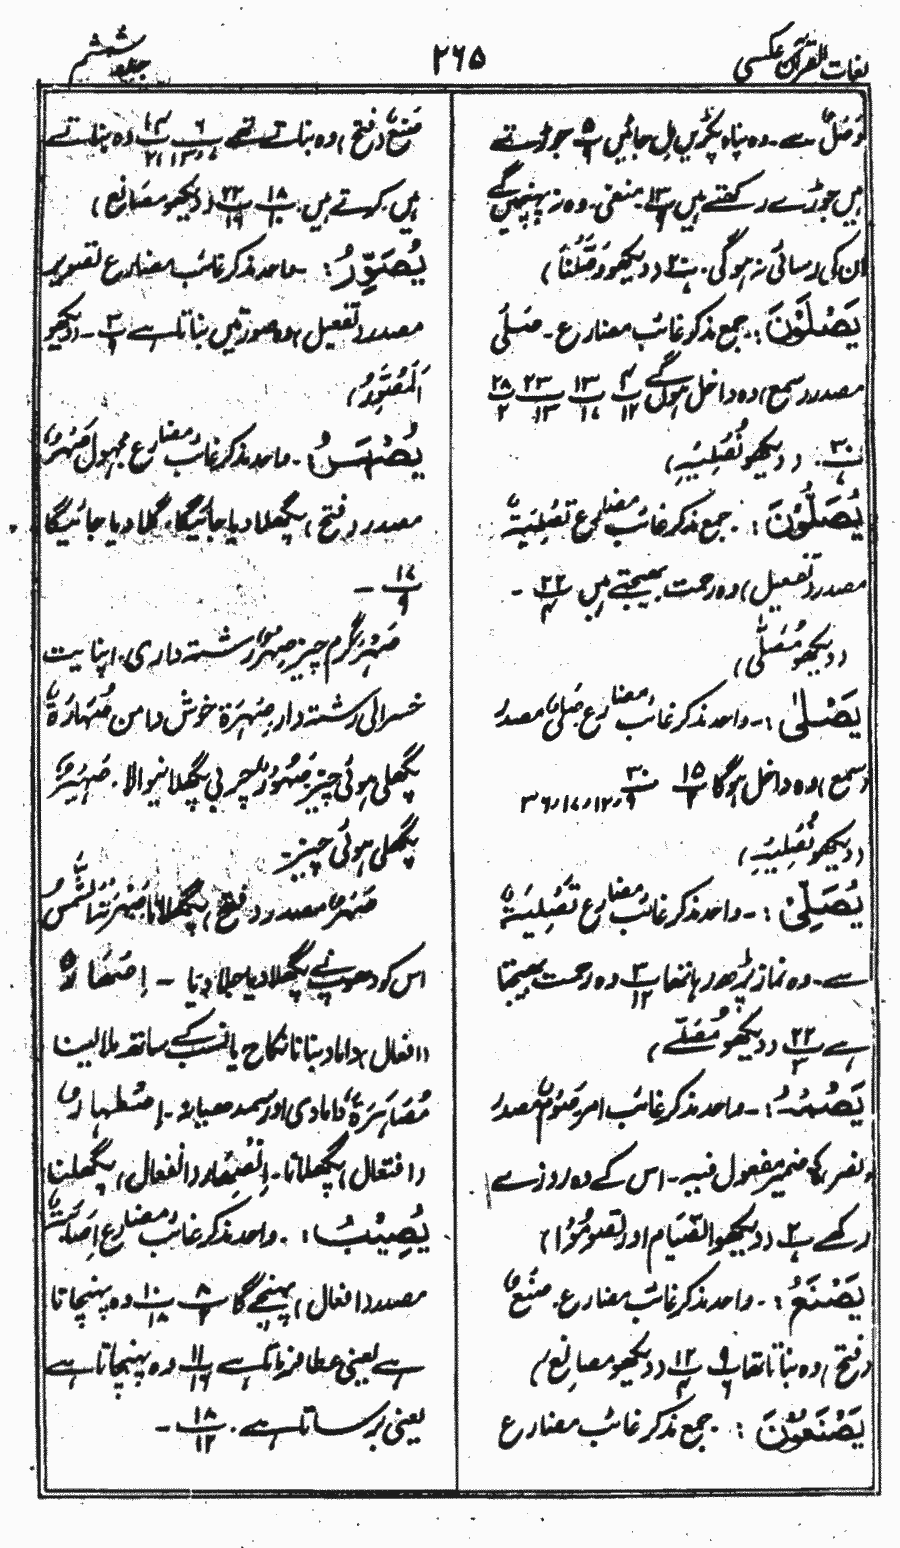 لغات القرآن عکسی
۲۶۵
جلد ششم
وَصَلَ سے۔ وہ پناہ پکڑیں، مل جائیں ۵/۹ جوڑتے
ہیں جوڑے رکھتے ہیں ۱۳/۹ منفی۔ وہ نہ پہنچیں گے
ان کی رسائی نہ ہوگی۔ (دیکھو وَصَّلْنَا)
یَصْلَوْنَ: جمع مذکر غائب مضارع۔ صَلْیٌ
مصدر (سمع) وہ داخل ہوں گے ۴/۱۲ ۱۳/۱۷ ۲۳/۱۳ ۲۸/۲
۳۰/۷۔ (دیکھو تَصْلِیَۃِ)
یُصَلُّوْنَ: جمع مذکر غائب مضارع تَصْلِیَۃٌ
مصدر (تفعیل) وہ رحمت بھیجتے ہیں ۲۲/۴ ۔
(دیکھو مُصَلًّی)
یَصْلٰی: واحد مذکر غائب مضارع صَلْیٌ مصدر
(سمع) وہ داخل ہوگا ۱۵/۲ ۳۰/۹،۱۲،۱۷،۳۶
(دیکھو تَصْلِیَۃِ)
یُصَلِّیْ: واحد مذکر غائب مضارع تَصْلِیَۃٌ
سے۔ وہ نماز پڑھ رہا تھا ۳/۱۲ وہ رحمت بھیجتا
ہے ۲۲/۳ (دیکھو مُصَلًّے)
یَصُمْہُ: واحد مذکر غائب امر صَوْمٌ مصدر
(نصر) ہ ضمیر مفعول فیہ۔ اس کے وہ روزے
رکھے ۲/۷ (دیکھو الصِّیَام اور تَصُوْمُوْا)
یَصْنَعُ: واحد مذکر غائب مضارع۔ صَنْعٌ
(فتح) وہ بناتا تھا ۹/۶ ۱۲/۴ (دیکھو مصانع)
یَصْنَعُوْنَ: جمع مذکر غائب مضارع
صَنْعٌ (فتح) وہ بناتے تھے ۶/۷،۱۳ ۱۴/۲۱ وہ بناتے
ہیں کرتے ہیں۔ ۱۸/۱۰ ۲۲/۱۹ (دیکھو مصانع)
یُصَوِّرُ: واحد مذکر غائب مضارع تصویر
مصدر (تفعیل) وہ صورتیں بناتا ہے ۳/۹ ۔ (دیکھو
اَلْمُصَوِّرُ)
یُصْہَرُ: واحد مذکر غائب مضارع مجہول صَہْرٌ
مصدر (فتح) پگھلا دیا جائیگا، گلا دیا جائیگا
۱۷/۹ ۔
صَہْرٌ گرم چیز صِہْرٌ رشتہ داری، اپنایت
خسرالی رشتہ دار صِہْرَۃٌ خوش دامن صُہَارَۃٌ
پگھلی ہوئی چیز صَہُوْرٌ چربی پگھلانیوالا۔ صَہِیْرٌ
پگھلی ہوئی چیز۔
صَہْرٌ مصدر (فتح) پگھلانا صَہَرَتْہُ الشَّمْسُ
اس کو دھوپ نے پگھلا دیا، جلا دیا ۔ اِصْہَارٌ
(افعال) داماد بنانا، نکاح یا نسب کے ساتھ ملا لینا
مُصَاہَرَۃٌ دامادی اور سمدھیانہ۔ اِصْطِہَارٌ
(افتعال) پگھلانا۔
یُصِیْبُ: واحد مذکر غائب مضارع اِصَابَۃٌ
مصدر (افعال) پہنچے گا ۸/۲ ۱۰/۱۸ وہ پہنچاتا
ہے یعنی عطا فرماتا ہے ۱۱/۱۶ وہ پہنچاتا ہے
یعنی برساتا ہے۔ ۱۸/۱۲ ۔